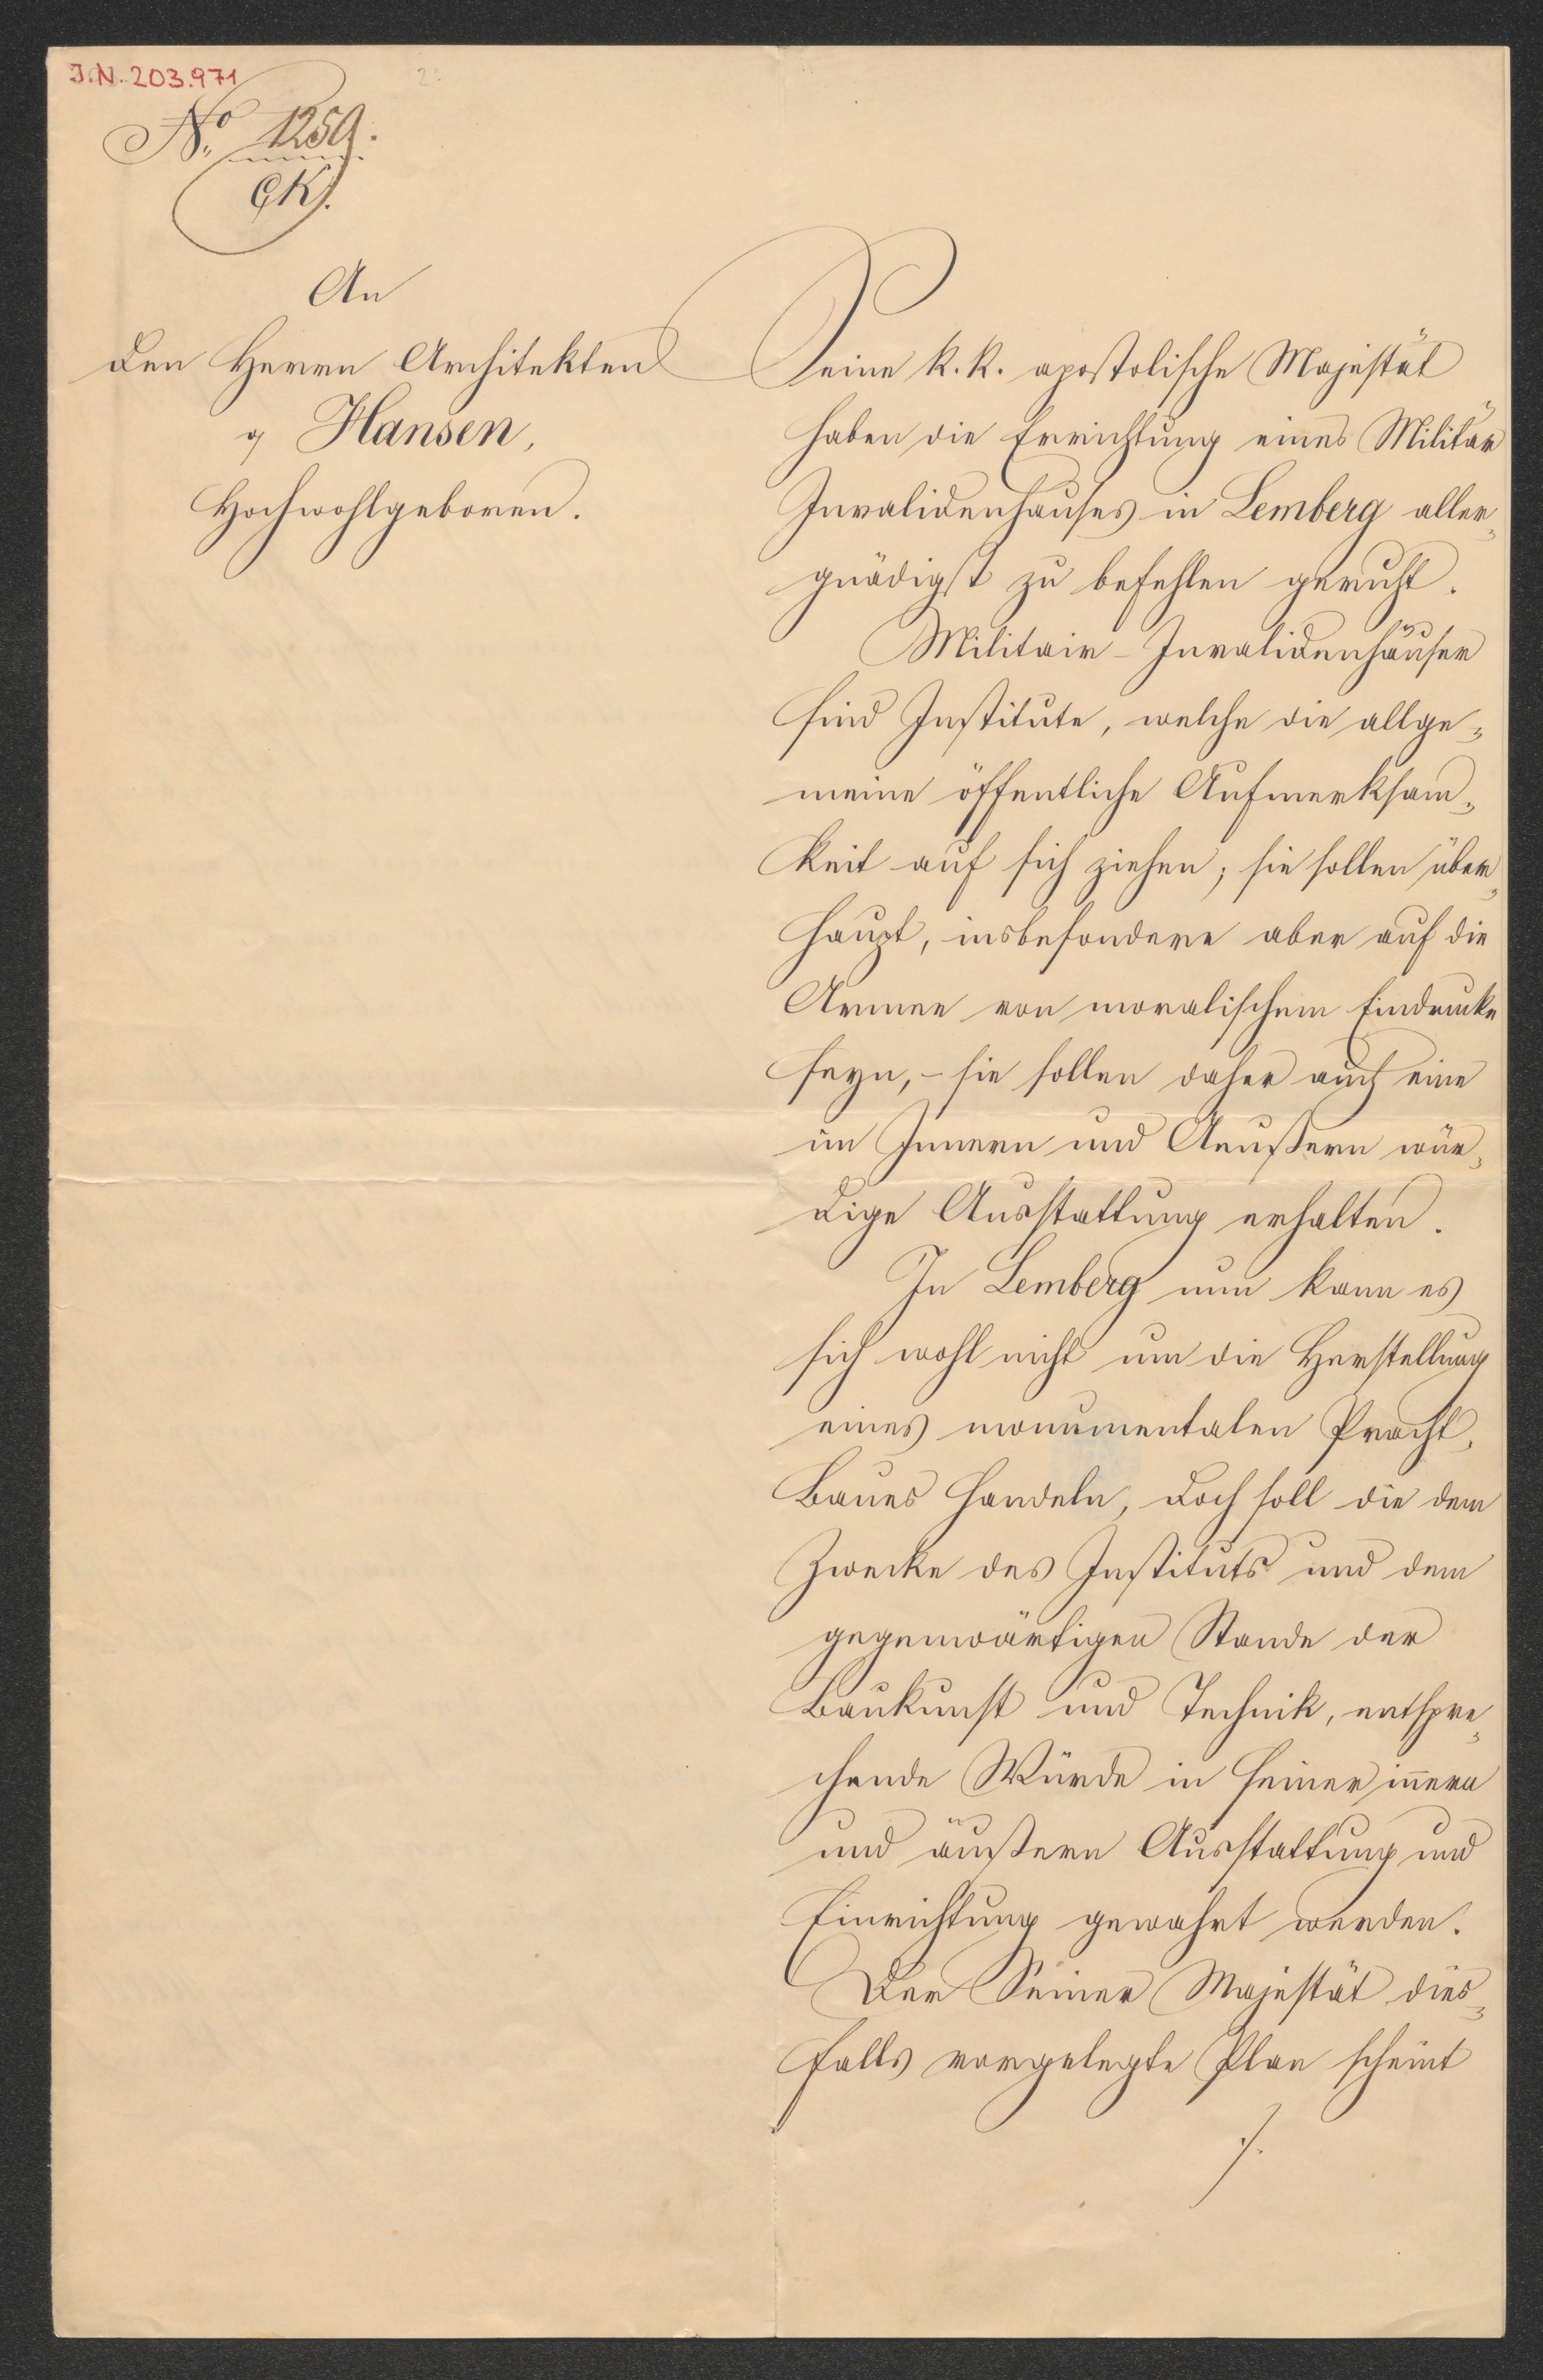 J.N. 203.971
No. 1259.
GK.
An
den Herrn Architekten
Hansen,
Hochwohlgeboren.
Seine k. k. apostolische Majestät
haben die Errichtung eines Militär
Invalidenhauses in Lemberg aller„
gnädigst zu befehlen geruht.
Militair-Invalidenhäuser
sind Institute, welche die allge„
meine öffentliche Aufmerksam„
keit auf sich ziehen; sie sollen über„
haupt, insbesondere aber auf die
Armee von moralischem Eindrucke
seyn, – sie sollen daher auch eine
im Innern und Aeußern wür„
dige Ausstattung erhalten.
In Lemberg nun kann es
sich wohl nicht um die Herstellung
eines monumentalen Pracht„
Baues handeln, doch soll die dem
Zwecke des Instituts und dem
gegenwärtigen Stande der
Baukunst und Technik, entspre„
chende Würde in seiner inern
und äußern Ausstattung und
Einrichtung gewahrt werden.
Der Seiner Majestät dies„
falls vorgelegte Plan scheint
./.